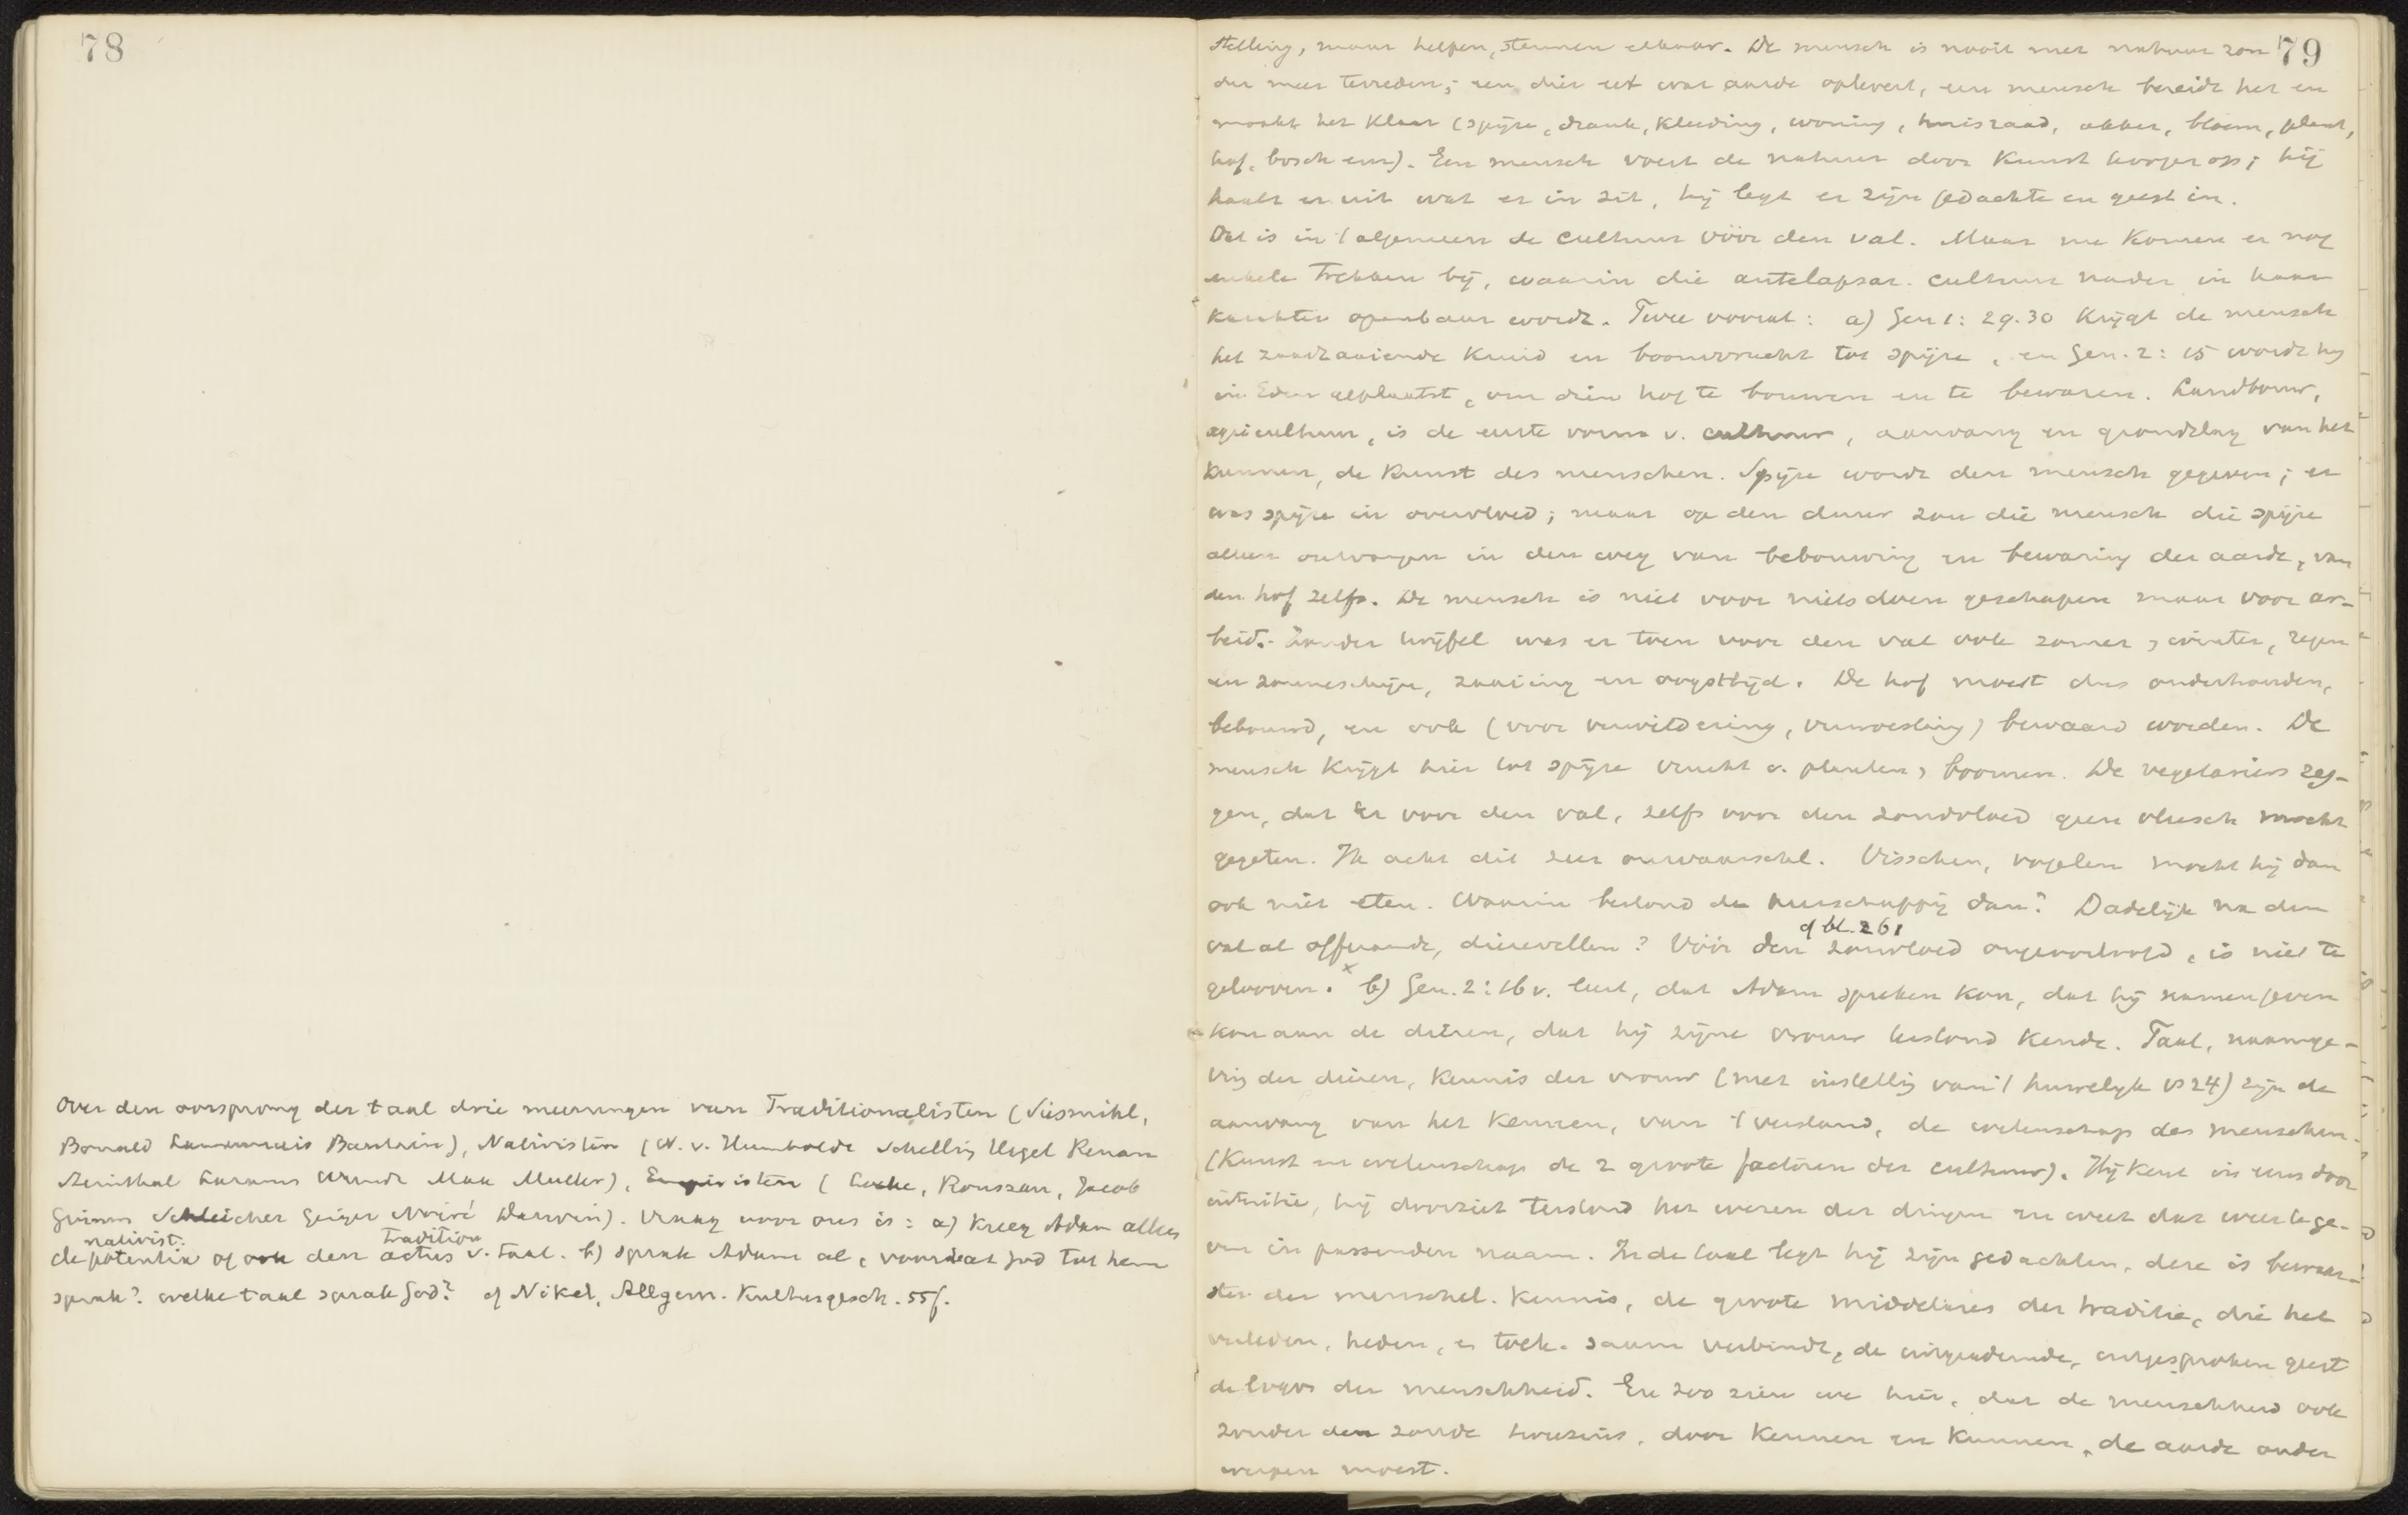 78
Over den oorsprong der taal drie meeningen van Traditionalisten (Süssmilch,
Bonald Lammenais Bautain), Nativisten (W. v. Humboldt Schelling Hegel Renan
Steinthal Lazarus Wundt Max Muller), Empiristen (Locke, Rousseau, Jacob
Grimm Schleicher Geiger Noiré Darwin). Vraag voor ons is: a) kreeg Adam alleen
nativist. tradition
de potentia of ook den actus v. taal. b) sprak Adam al, voordat God tot hem
sprak? welke taal sprak God? cf Nikel, Allgem. Kulturgesch. 55f.
79
stelling, maar helpen, steunen elkaar. De mensch is nooit met natuur zon
der meer tevreden; een dier eet wat aarde oplevert, een mensch bereidt het en
maakt het klaar (spijze, drank, kleeding, woning, huisraad, akker, bloem, plant,
hof, bosch enz). Een mensch voert de natuur door kunst hooger op; hij
haalt er uit wat er in zit, hij legt er zijn gedachte en geest in.
Dat is in 't algemeen de cultuur vóór den val. Maar nu komen er nog
enkele trekken bij, waarin die antelapsar. cultuur nader in haar
karakter openbaar wordt. Twee vooral: a) Gen 1: 29.30 krijgt de mensch
het zaadzaaiende kruid en boomvrucht tot spijze, en Gen. 2: 15 wordt hij
in Eden geplaatst, om dien hof te bouwen en te bewaren. Landbouw,
agricultuur, is de eerste vorm v. cultuur, aanvang en grondslag van het
kunnen, de kunst des menschen. Spijze wordt den mensch gegeven; er
was spijze in overvloed; maar op den duur zou die mensch die spijze
alleen ontvangen in den weg van bebouwing en bewaring der aarde, van
den hof zelfs. De mensch is niet voor niets doen geschapen maar voor ar-
beid. Zonder twijfel was er toen voor den val ook zomer, winter, regen
en zonneschijn, zaaiing en oogsttijd. De hof moest dus onderhouden,
bebouwd, en ook (voor verwildering, verwoesting) bewaard worden. De
mensch krijgt hier tot spijze vrucht v. planten, boomen. De vegetariers zeg-
gen, dat er voor den val, zelfs voor den zondvloed geen vleesch mocht
gegeten. Ik acht dit zeer onwaarschl. Visschen, vogelen mocht hij dan
ook niet eten. Waarin bestond de heerschappij dan? Dadelijk na den
cf bl. 261
val al offerande, dierevellen? Vóór den zondvloed ongeoorloofd, is niet te
gelooven. x b) Gen. 2: 16 v. leert, dat Adam spreken kon, dat hij namen geven
kon aan de dieren, dat hij zijne vrouw terstond kende. Taal, naamge-
ving der dieren, kennis der vrouw (met instelling van 't huwelijk vs 24) zijn de
aanvang van het kennen, van 't verstand, de wetenschap des menschen.
(Kunst en wetenschap de 2 groote factoren der cultuur). Hij kent in eens door
intuitie, hij doorziet terstond het wezen der dingen en weet dat weer te ge-
ven in passenden naam. In de taal legt hij zijn gedachten, deze is bewaar-
ster der menschel. kennis, de groote middelares der traditie, die het
verleden, heden, en toek. saam verbindt, de uitgeademde, uitgesproken geest
de logos der menschheid. En zoo zien we hier, dat de menschheid ook
zonder den zonde tweezins, door kennen en kunnen, de aarde onder
werpen moest.